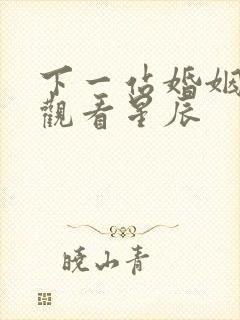 下一佔婚姻
觀看星辰
曉山青